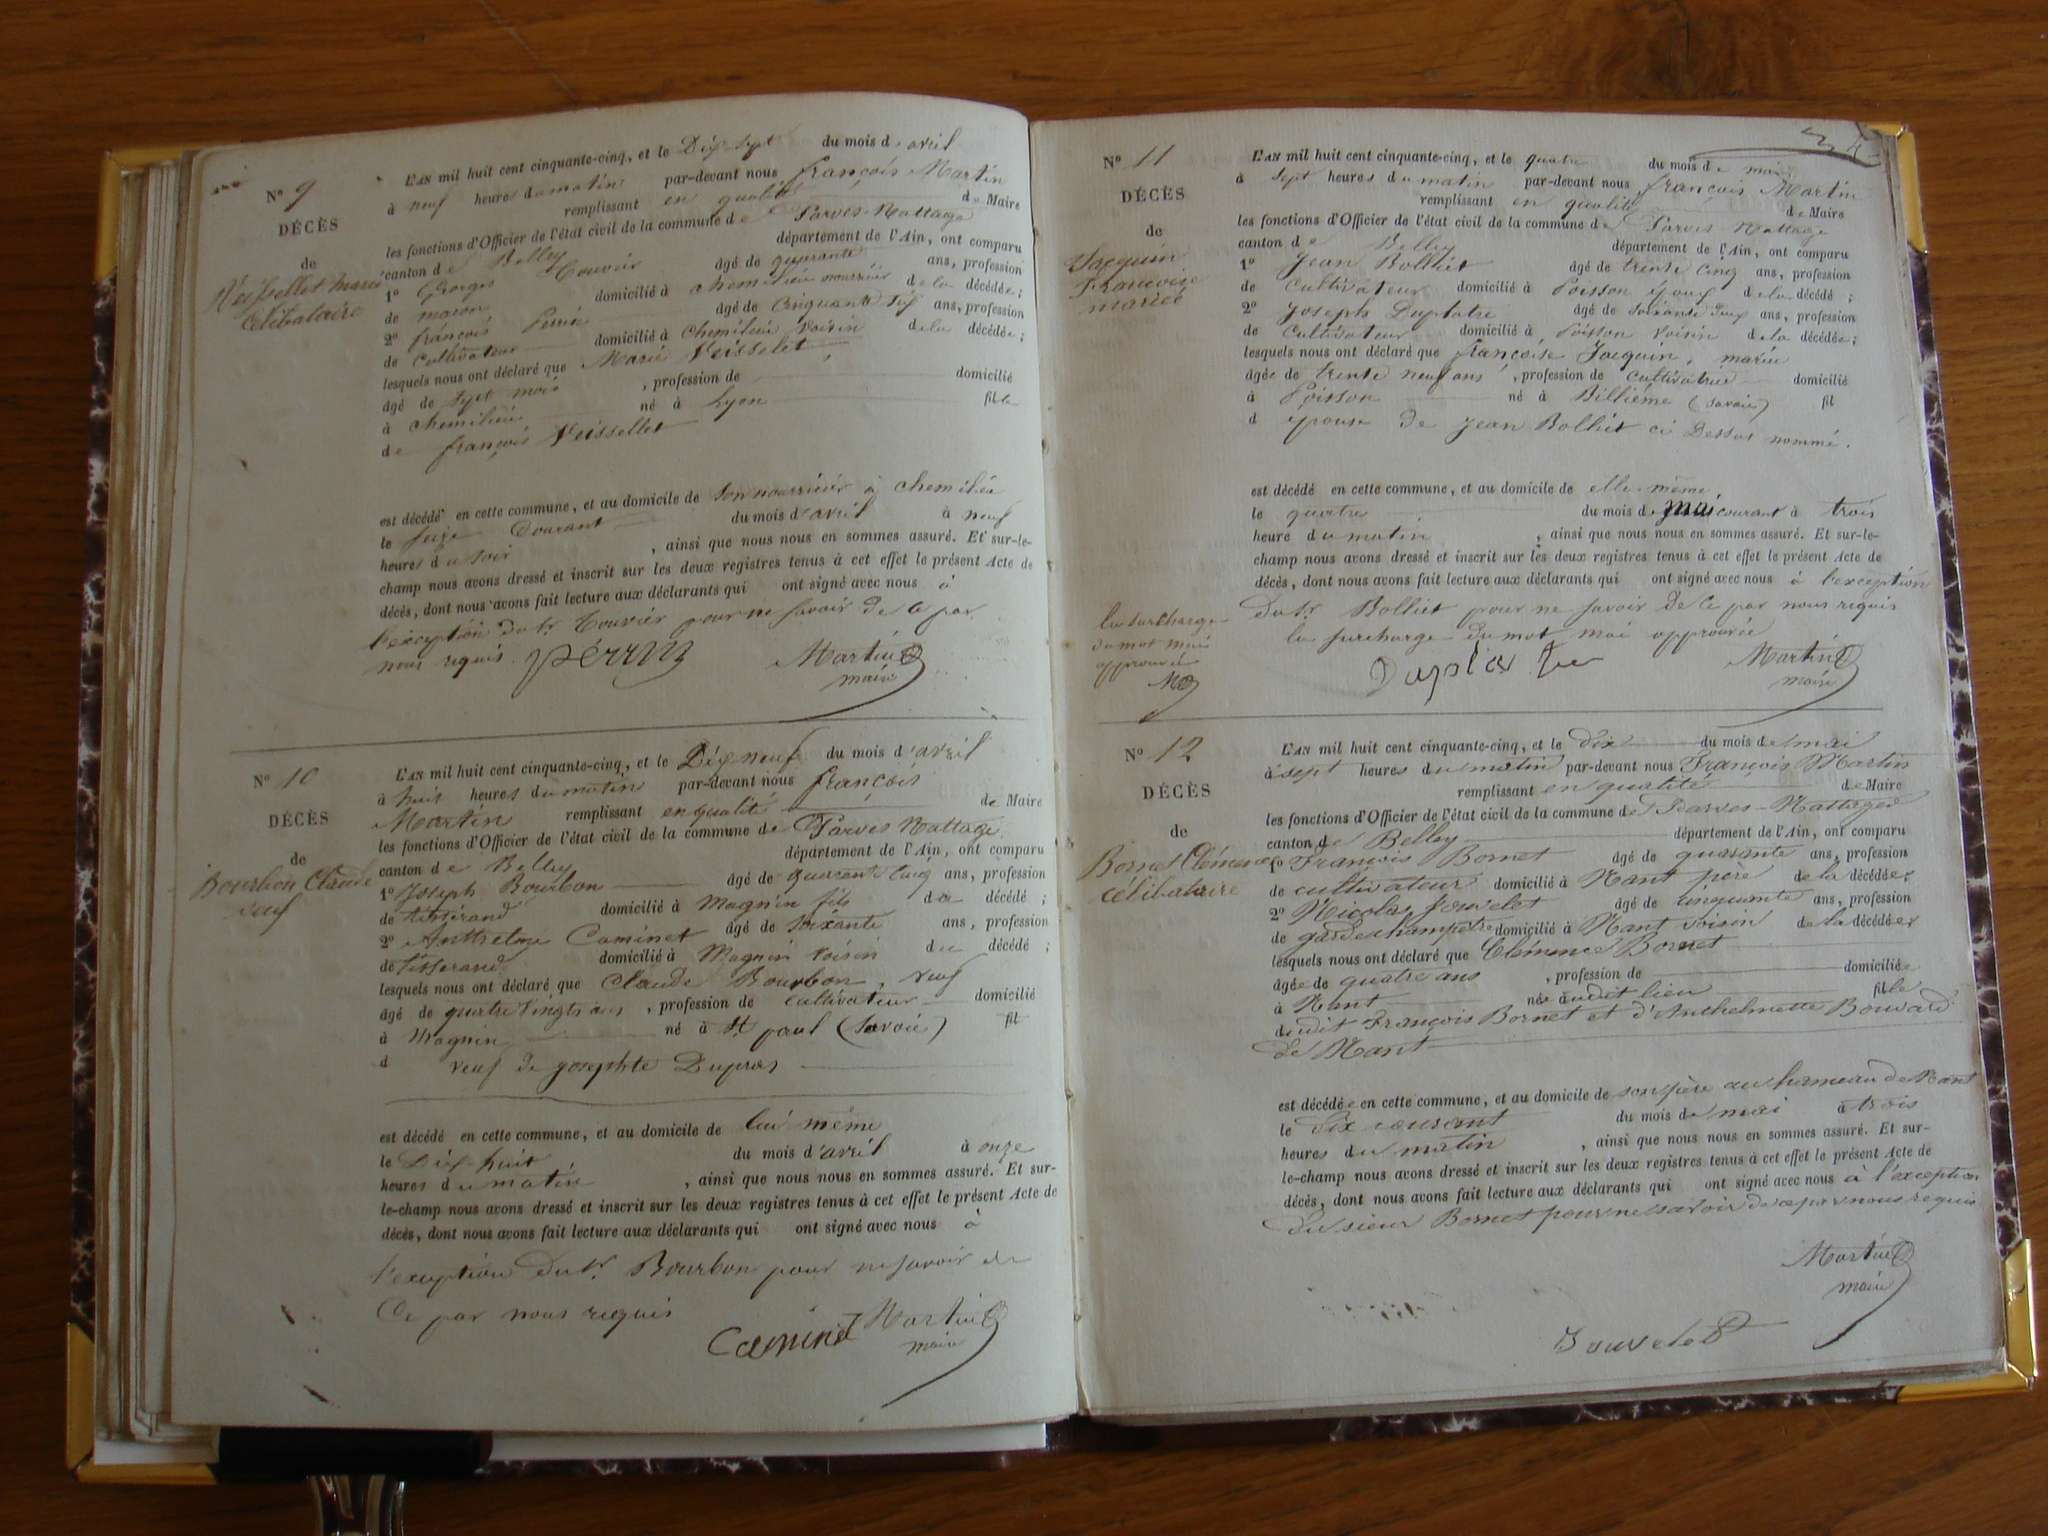 N° 9
DÉCÈS
de
Veissellet Marie
célibataire
L'AN mil huit cent cinquante-cinq, et le Dix sept du mois d'avril
à neuf heures du matin par-devant nous françois Martin
remplissant en qualité de Maire
les fonctions d'Officier de l'état civil de la commune de Parves-Nattage
canton de Belley département de l'Ain, ont comparu
1° Georges Touvier âgé de quarante ans, profession
de maçon domicilié à chemilieu nourricier de la décédée;
2° françois Perrin âgé de cinquante six ans, profession
de cultivateur domicilié à Chemilieu voisin de la décédée;
lesquels nous ont déclaré que Marie Veisselet,
âgé de sept mois, profession de domicilié
à chemilieu né à Lyon fille
de françois Veissellet
est décédé en cette commune, et au domicile de son nourricier à chemilieu
le seize Courant du mois d'avril à neuf
heures du soir, ainsi que nous nous en sommes assuré. Et sur-le-
champ nous avons dressé et inscrit sur les deux registres tenus à cet effet le présent Acte de
décès, dont nous avons fait lecture aux déclarants qui ont signé avec nous à
l'exception du Sr. Touvier pour ne savoir de ce par
nous requis. Perrin Martin
maire
N° 10
DÉCÈS
de
Bourbon Claude
veuf
L'AN mil huit cent cinquante-cinq, et le Dix neuf du mois d'avril
à huit heures du matin par-devant nous françois
Martin remplissant en qualité de Maire
les fonctions d'Officier de l'état civil de la commune de Parves Nattage
canton de Belley département de l'Ain, ont comparu
1° Joseph Bourbon âgé de quarante cinq ans, profession
de tisserand domicilié à Magnin fils du décédé;
2° Anthelme Caminet âgé de soixante ans, profession
de tisserand domicilié à Magnin voisin du décédé;
lesquels nous ont déclaré que Claude Bourbon, veuf
âgé de quatre vingts ans, profession de cultivateur domicilié
à Magnin né à St paul (Savoie) fil
d veuf de Josephte Dupras
est décédé en cette commune, et au domicile de lui même
le Dix-huit du mois d'avril à onze
heures du matin, ainsi que nous nous en sommes assuré. Et sur-
le-champ nous avons dressé et inscrit sur les deux registres tenus à cet effet le présent Acte de
décès, dont nous avons fait lecture aux déclarants qui ont signé avec nous à
l'exception du Sr. Bourbon pour ne savoir de
Ce par nous requis
Caminet Martin
maire
N° 11
DÉCÈS
de
Jacquin
Françoise
mariée
L'AN mil huit cent cinquante-cinq, et le quatre du mois de mai
à sept heures du matin par-devant nous françois Martin
remplissant en qualité de Maire
les fonctions d'Officier de l'état civil de la commune de Parves Nattage
canton de Belley département de l'Ain, ont comparu
1° Jean Bolliet âgé de trente cinq ans, profession
de Cultivateur domicilié à Poisson époux de la décédé;
2° Joseph Duplatre âgé de soixante deux ans, profession
de Cultivateur domicilié à Poisson voisin de la décédée;
lesquels nous ont déclaré que françoise Jacquin, mariée
âgée de trente neuf ans, profession de cultivatrice domicilié
à Poisson né à Billième (Savoie) fil
d épouse de Jean Bolliet ci Dessus nommé.
est décédé en cette commune, et au domicile de elle-même,
le quatre du mois de mai courant à trois
heure du matin, ainsi que nous nous en sommes assuré. Et sur-le-
champ nous avons dressé et inscrit sur les deux registres tenus à cet effet le présent Acte de
décès, dont nous avons fait lecture aux déclarants qui ont signé avec nous à l'exception
du Sr. Bolliet pour ne savoir de ce par nous requis
la surcharge du mot mai approuvée
la surcharge
du mot mai
approuvée
Duplatre Martin
maire
N° 12
DÉCÈS
de
Bornet Clémence
célibataire
L'AN mil huit cent cinquante-cinq, et le dix du mois de mai
à sept heures du matin par-devant nous François Martin
remplissant en qualité de Maire
les fonctions d'Officier de l'état civil de la commune de Parves-Nattages
canton de Belley département de l'Ain, ont comparu
1° François Bornet âgé de quarante ans, profession
de cultivateur domicilié à Nant père de la décédée
2° Nicolas Jouvelet âgé de cinquante ans, profession
de garde champêtre domicilié à Nant voisin de la décédée
lesquels nous ont déclaré que Clémence Bornet
âgée de quatre ans, profession de domiciliée
à Nant née audit lieu fille
dudit François Bornet et d'Anthelmette Bouvard
de Nant
est décédée en cette commune, et au domicile de son père au hameau de Nant
le dix courant du mois de mai à trois
heures du matin, ainsi que nous nous en sommes assuré. Et sur-
le-champ nous avons dressé et inscrit sur les deux registres tenus à cet effet le présent Acte de
décès, dont nous avons fait lecture aux déclarants qui ont signé avec nous à l'exception
du sieur Bornet pour ne savoir de ce par nous requis
Martin
maire
Jouvelet